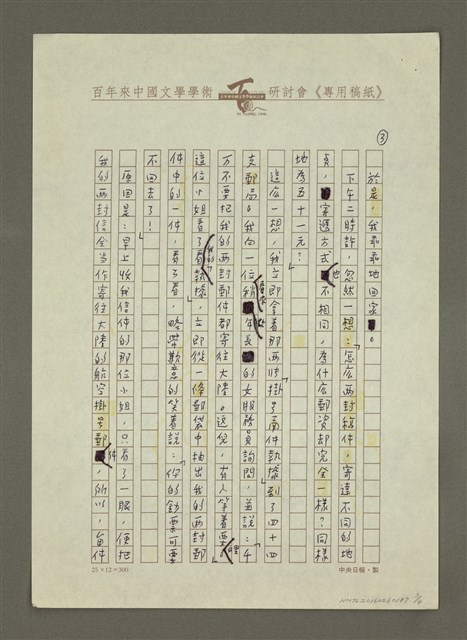 百年來中國文學學術研討會《專用稿紙》
③
於是，我乖乖地回家。
下午二時許，忽然一想：怎么两封稿件，寄達不同的地
矣，寄遞方式也不相同，為什么郵資却完全一樣？同樣
地為五十一元？
這么一想，我立即拿着那两张掛号函件執據，到了四十四
支郵局。我向一位稍年長的女服務員詢問，並說：千
万不要把我的两封郵件都寄往大陸。这位，有人等着要
這位小姐看了看執據，立即從一條郵袋中抽出我的两封郵
件中的一件，看了看，略帶歉意的笑着說：你的郵票可要
不回去了！」
原因是：早上收我信件的那位小姐，只看了一眼，便把
我的两封信全当作寄往大陸的航空掛号郵件，所以，每件
25×12=300
中央日報·製